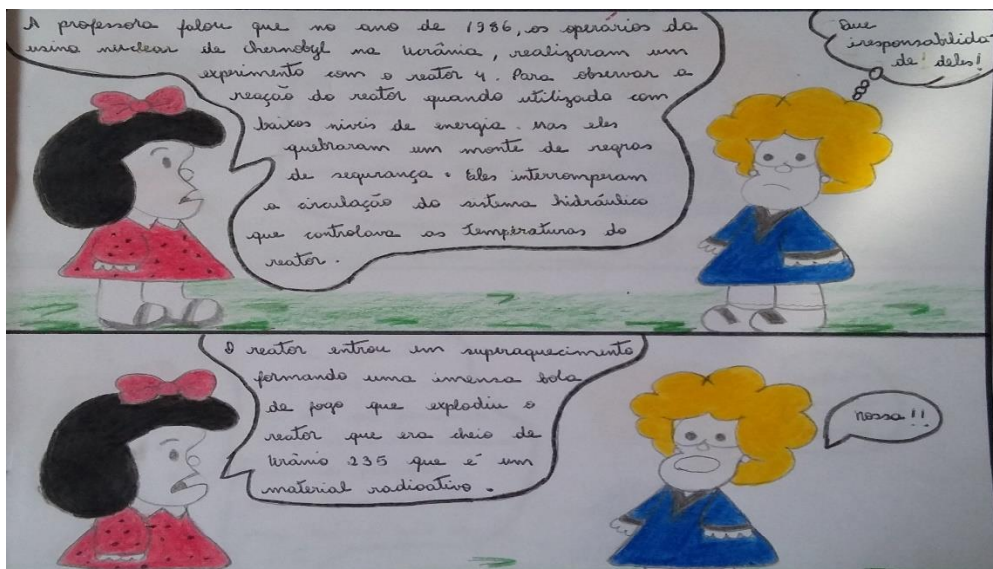 A professora falou que no ano de 1986, os operários da
usina nuclear de Chernobyl na Ucrânia, realizaram um
experimento com o reator 4. Para observar a
reação do reator quando utilizada com
baixos níveis de energia. Mas eles
quebraram um monte de regras
de segurança. Eles interromperam
a circulação do sistema hidráulico
que controlava as temperaturas do
reator.
Que
iresponsabilida-
de deles!
O reator entrou em superaquecimento
formando uma imensa bola
de fogo que explodiu o
reator que era cheio de
Urânio 235 que é um
material radioativo.
Nossa!!